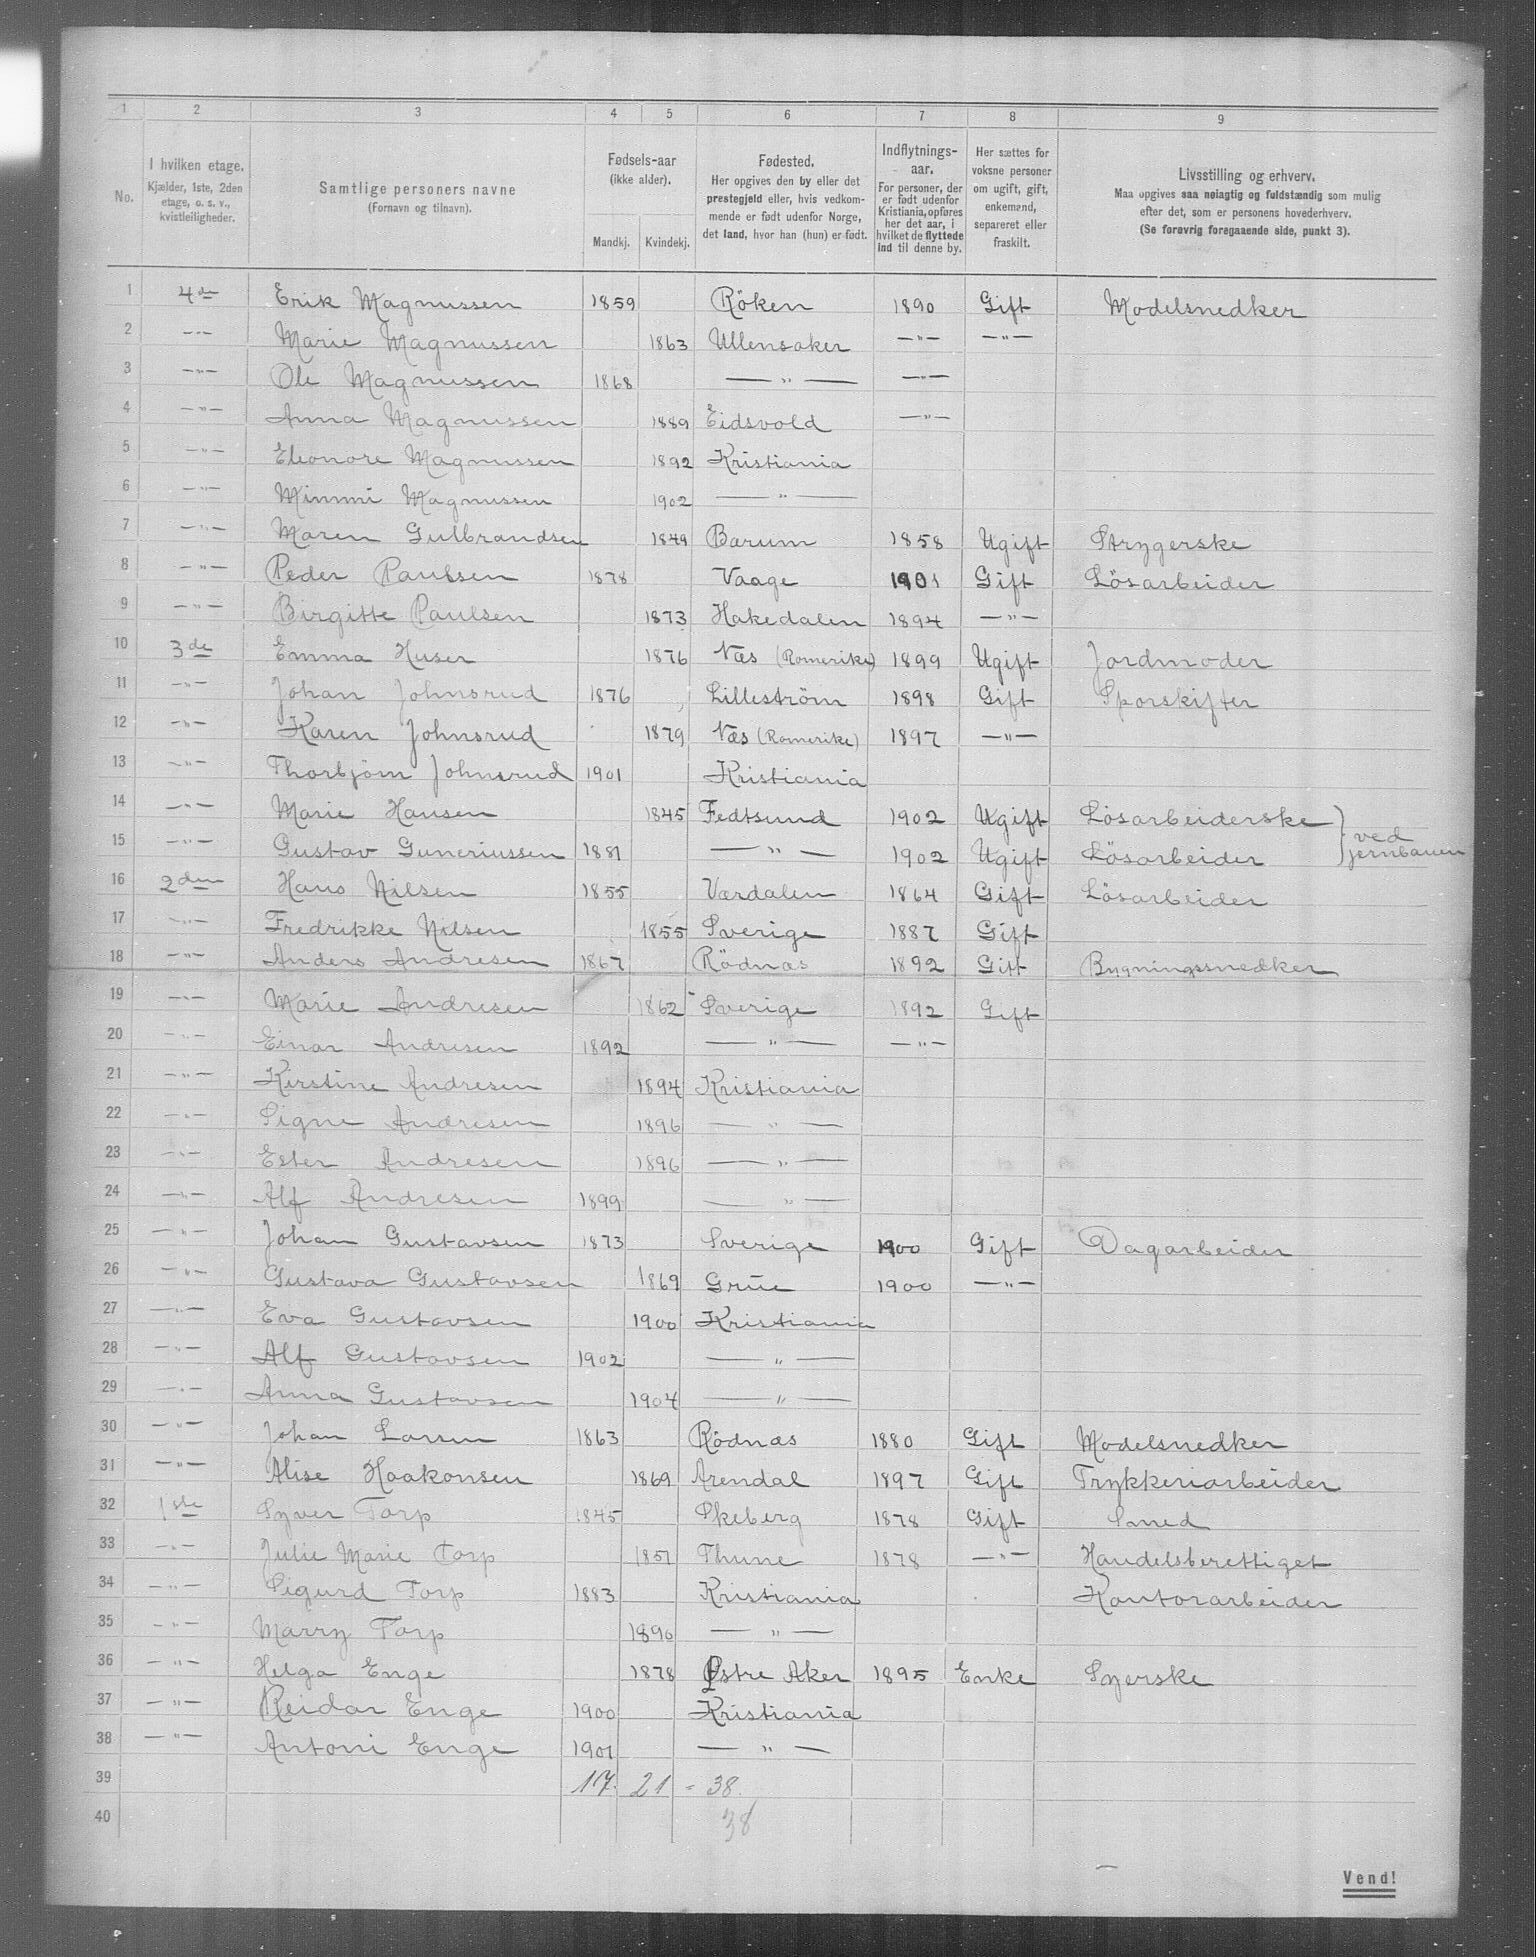 1 2 3 4 5 6 7 8 9
No. I hvilken etage. Kjælder, 1ste, 2den etage, o. s. v., kvistleiligheder. Samtlige personers navne (Fornavn og tilnavn). Fødsels-aar (ikke alder). Mandkj. Kvindekj. Fødested. Her opgives den by eller det prestegjeld eller, hvis vedkommende er født udenfor Norge, det land, hvor han (hun) er født. Indflytnings-aar. For personer, der er født udenfor Kristiania, opføres her det aar, i hvilket de flyttede ind til denne by. Her sættes for voksne personer om ugift, gift, enkemand, separeret eller fraskilt. Livsstilling og erhverv. Maa opgives saa nøiagtig og fuldstændig som mulig efter det, som er personens hovederhverv. (Se forøvrig foregaaende side, punkt 3).
1 4de Erik Magnussen 1859 Röken 1890 Gift Modelsnedker
2 —"— Marie Magnussen 1863 Ullensaker —"— —"—
3 —"— Ole Magnussen 1868 —"— —"—
4 —"— Anna Magnussen 1889 Eidsvold —"—
5 —"— Eleonore Magnussen 1892 Kristiania
6 —"— Mimmi Magnussen 1902 —"—
7 —"— Maren Gulbrandsen 1849 Barum 1858 Ugift Strygerske
8 —"— Peder Paulsen 1878 Vaage 1901 Gift Lösarbeider
9 —"— Birgitte Paulsen 1873 Hakedalen 1894 —"—
10 3de Emma Huser 1876 Næs (Romerike) 1899 Ugift Jordmoder
11 —"— Johan Johnsrud 1876 Lilleström 1898 Gift Sporskifter
12 —"— Karen Johnsrud 1879 Næs (Romerike) 1897 —"—
13 —"— Thorbjörn Johnsrud 1901 Kristiania
14 —"— Marie Hansen 1845 Fedtsund 1902 Ugift Lösarbeiderske } ved jernbanen
15 —"— Gustav Guneriussen 1881 —"— 1902 Ugift Lösarbeider
16 2den Hans Nilsen 1855 Værdalen 1864 Gift Lösarbeider
17 —"— Fredrikke Nilsen 1855 Sverige 1887 Gift
18 —"— Anders Andresen 1867 Rödnæs 1892 Gift Bygningssnedker
19 —"— Marie Andresen 1862 Sverige 1892 Gift
20 —"— Einar Andresen 1892 —"— —"—
21 —"— Kirstine Andresen 1894 Kristiania
22 —"— Signe Andresen 1896 —"—
23 —"— Ester Andresen 1896 —"—
24 —"— Alf Andresen 1899 —"—
25 —"— Johan Gustavsen 1873 Sverige 1900 Gift Dagarbeider
26 —"— Gustava Gustavsen 1869 Grue 1900 —"—
27 —"— Eva Gustavsen 1900 Kristiania
28 —"— Alf Gustavsen 1902 —"—
29 —"— Anna Gustavsen 1904 —"—
30 —"— Johan Larsen 1863 Rödnæs 1880 Gift Modelsnedker
31 —"— Alise Haakonsen 1869 Arendal 1897 Gift Trykkeriarbeider
32 1ste Syver Torp 1845 Skeberg 1878 Gift Smed
33 —"— Julie Marie Torp 1851 Thune 1878 —"— Handelsberettiget
34 —"— Sigurd Torp 1883 Kristiania Kontorarbeider
35 —"— Marry Torp 1890 —"—
36 —"— Helga Enge 1878 Østre Aker 1895 Enke Syerske
37 —"— Reidar Enge 1900 Kristiania
38 —"— Antoni Enge 1901 —"—
39 17 21 = 38
40 38
Vend!